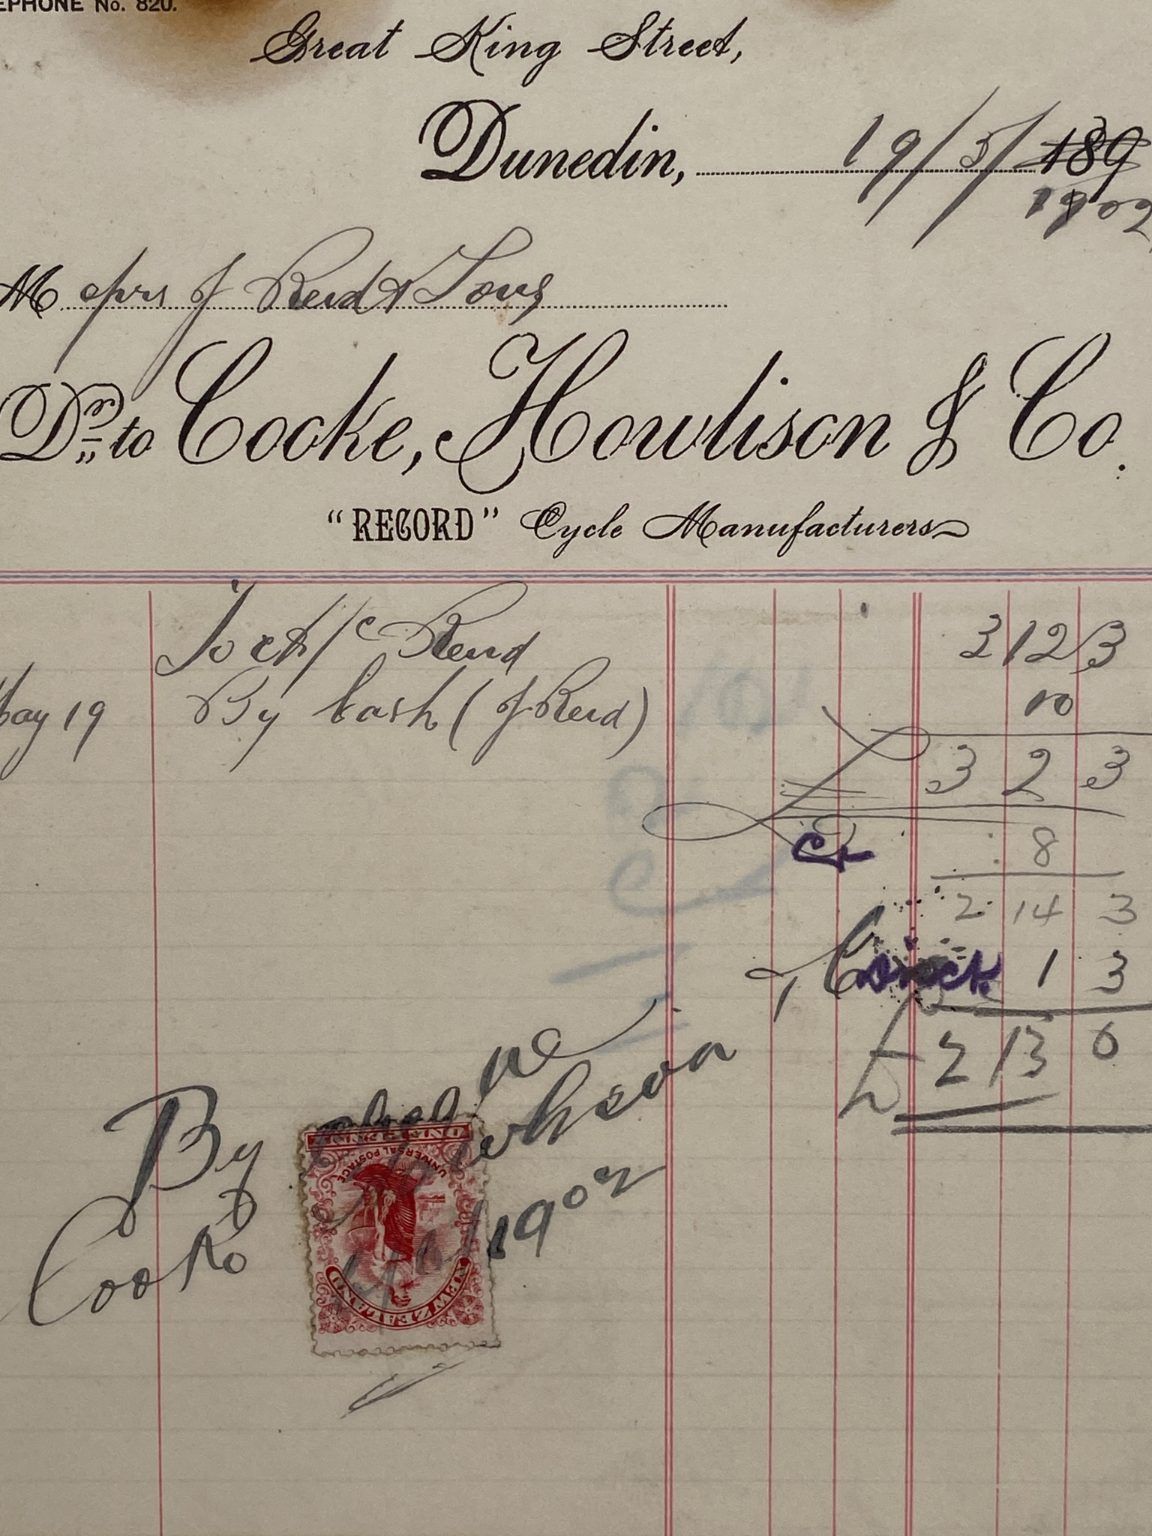 EPHONE No. 820.
Great King Street,
Dunedin, 19/5/189
1902
Messrs J Reid & Sons
Dr. to Cooke, Howlison & Co.
"RECORD" Cycle Manufacturers
To a/c Rend 3 12 3
May 19 By Cash (J Reid) 10
£ 3 2 3
Cr 8
2 14 3
1 3
£ 2 13 0
By Cheque
Cooke Howlison
1902
UNIVERSAL POSTAGE
NEW ZEALAND